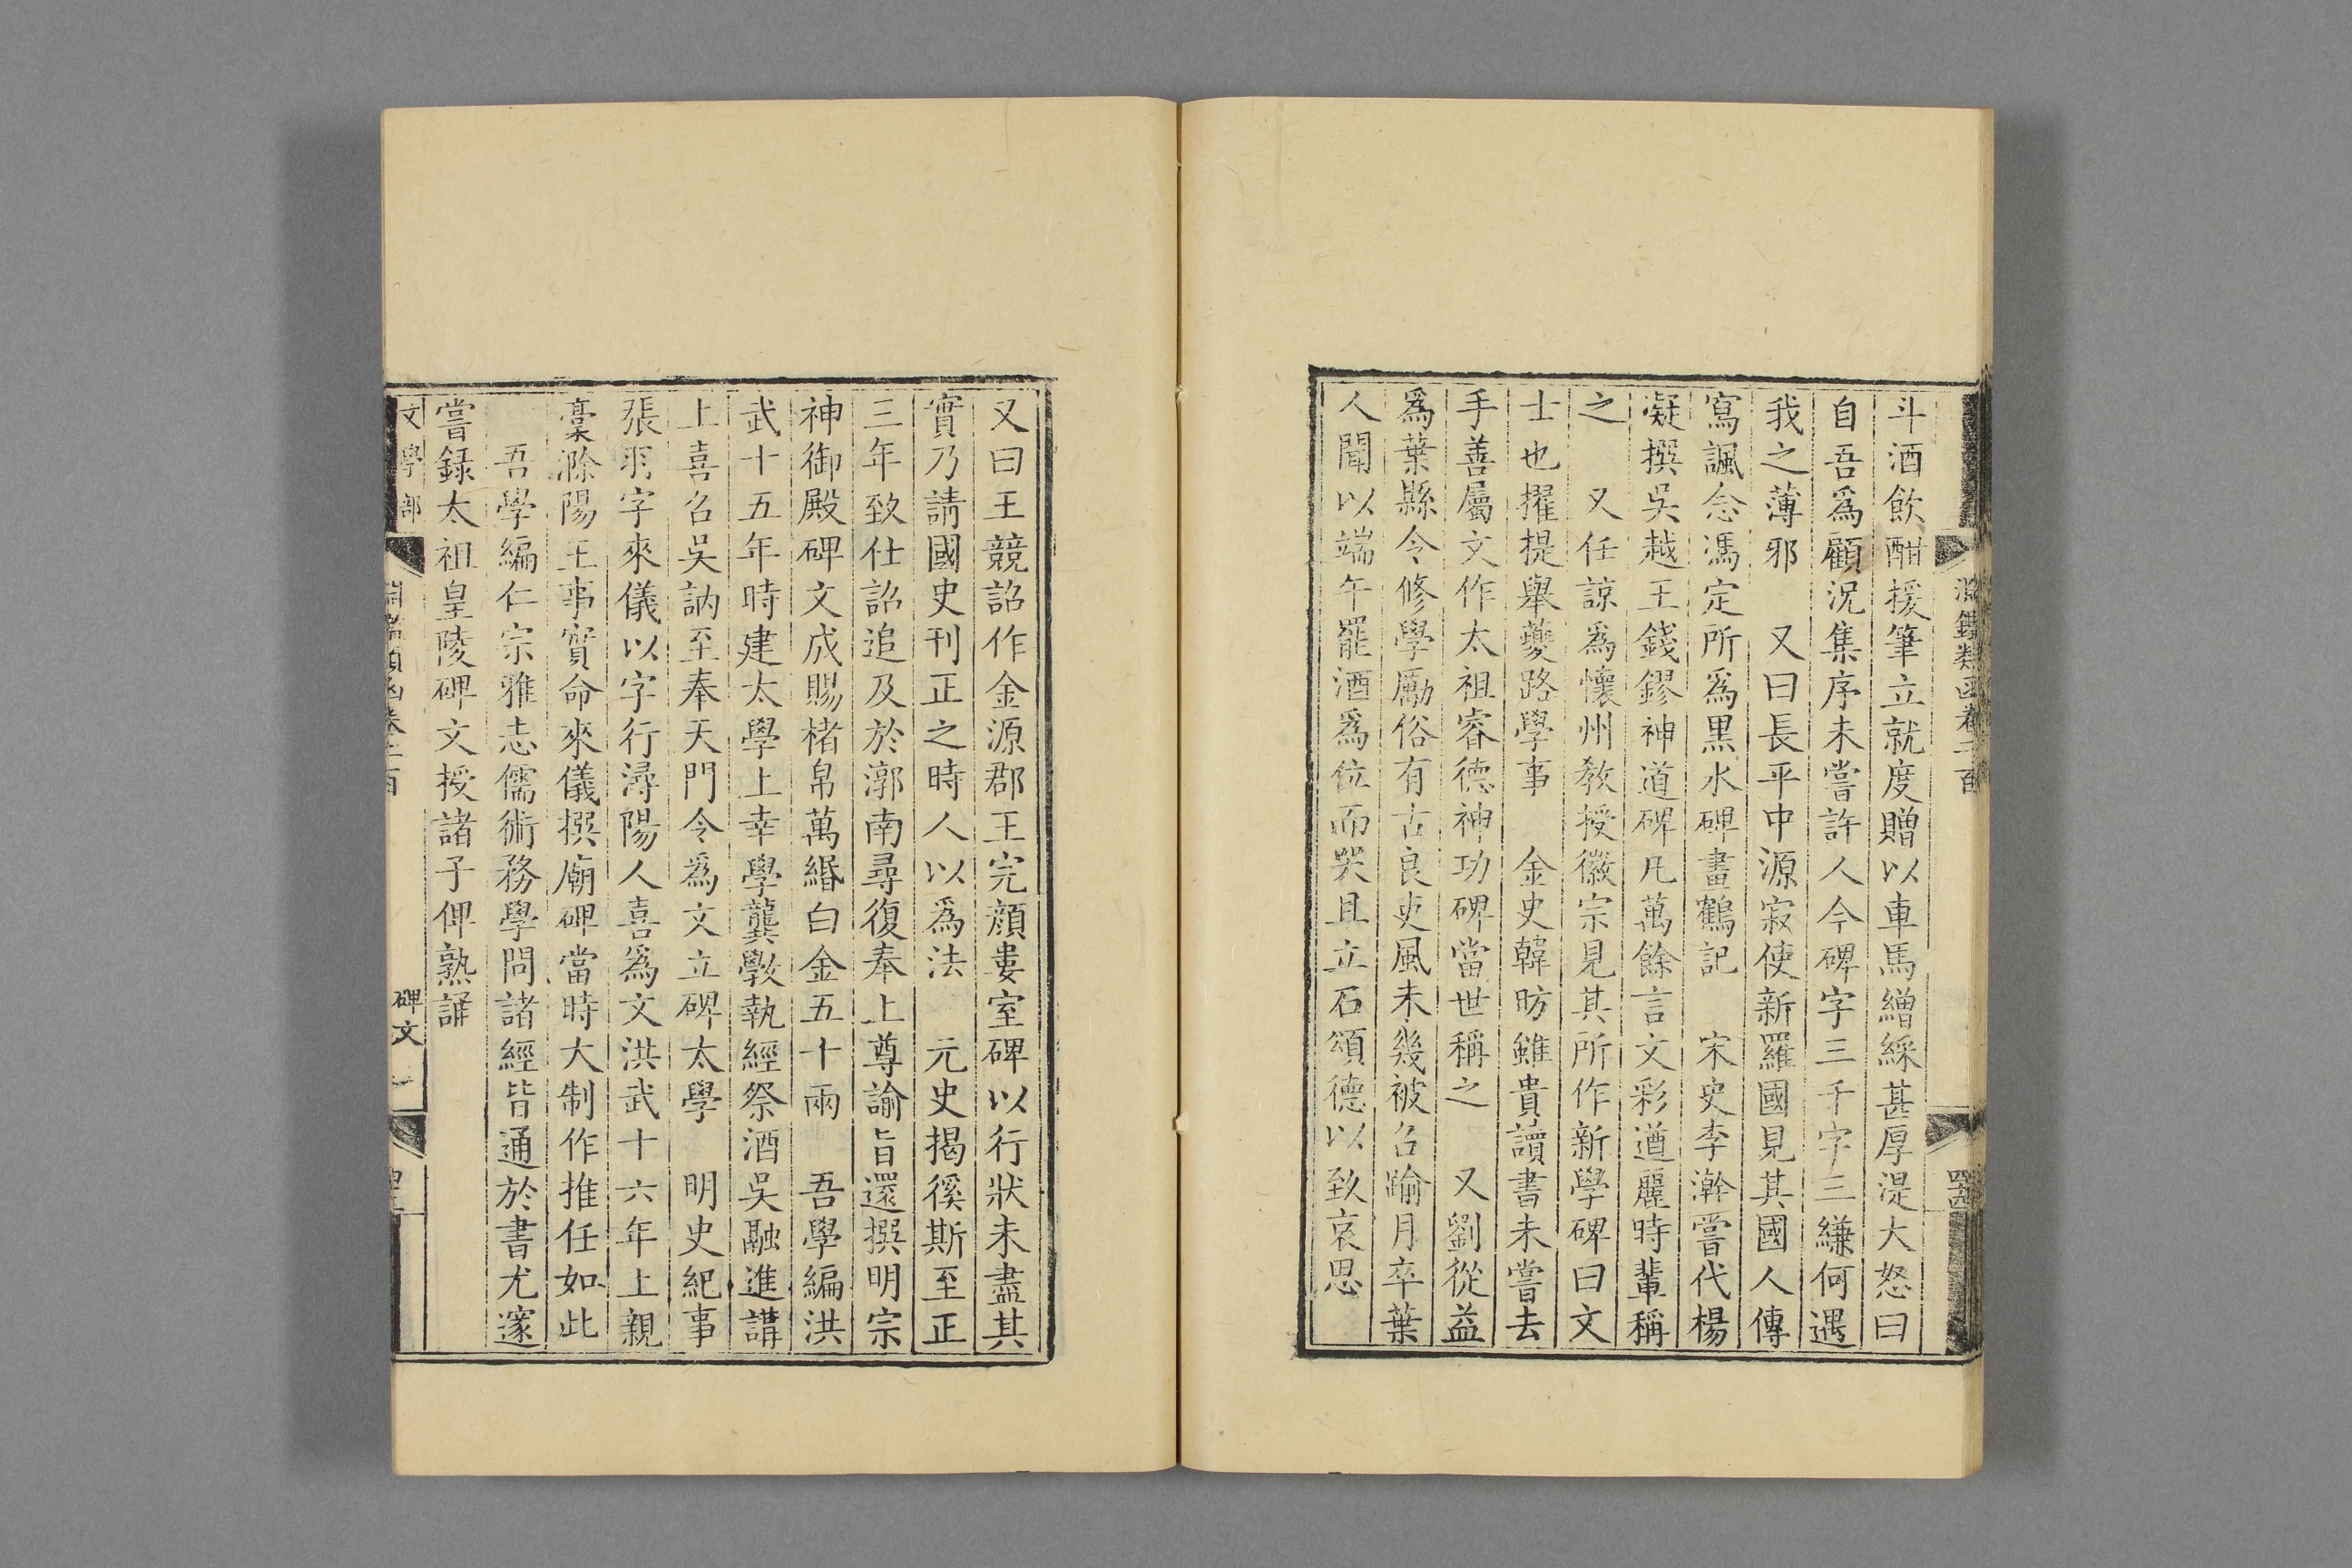 淵鑑類函卷二百
斗酒飲酣援筆立就度贈以車馬繒綵甚厚湜大怒曰
自吾爲顧況集序未嘗許人今碑字三千字三縑何遇
我之薄邪　又曰長平中源寂使新羅國見其國人傳
寫諷念馮定所爲黑水碑畫鶴記　宋史李瀚嘗代楊
凝撰吳越王錢鏐神道碑凡萬餘言文彩遒麗時輩稱
之　又任諒爲懷州教授徽宗見其所作新學碑曰文
士也擢提舉夔路學事　金史韓昉雖貴讀書未嘗去
手善屬文作太祖睿德神功碑當世稱之　又劉從益
爲葉縣令修學勵俗有古良吏風未幾被召踰月卒葉
人聞以端午罷酒爲位而哭且立石頌德以致哀思
又曰王競詔作金源郡王完顏婁室碑以行狀未盡其
實乃請國史刊正之時人以爲法　元史揭徯斯至正
三年致仕詔追及於漷南尋復奉上尊諭旨還撰明宗
神御殿碑文成賜楮帛萬緡白金五十兩　吾學編洪
武十五年時建太學上幸學龔斆執經祭酒吳融進講
上喜召吳訥至奉天門令爲文立碑太學　明史紀事
張羽字來儀以字行潯陽人喜爲文洪武十六年上親
稾滁陽王事實命來儀撰廟碑當時大制作推任如此
吾學編仁宗雅志儒術務學問諸經皆通於書尤邃
嘗録太祖皇陵碑文授諸子俾熟誦
文學部
淵鑑類函卷二百
碑文一